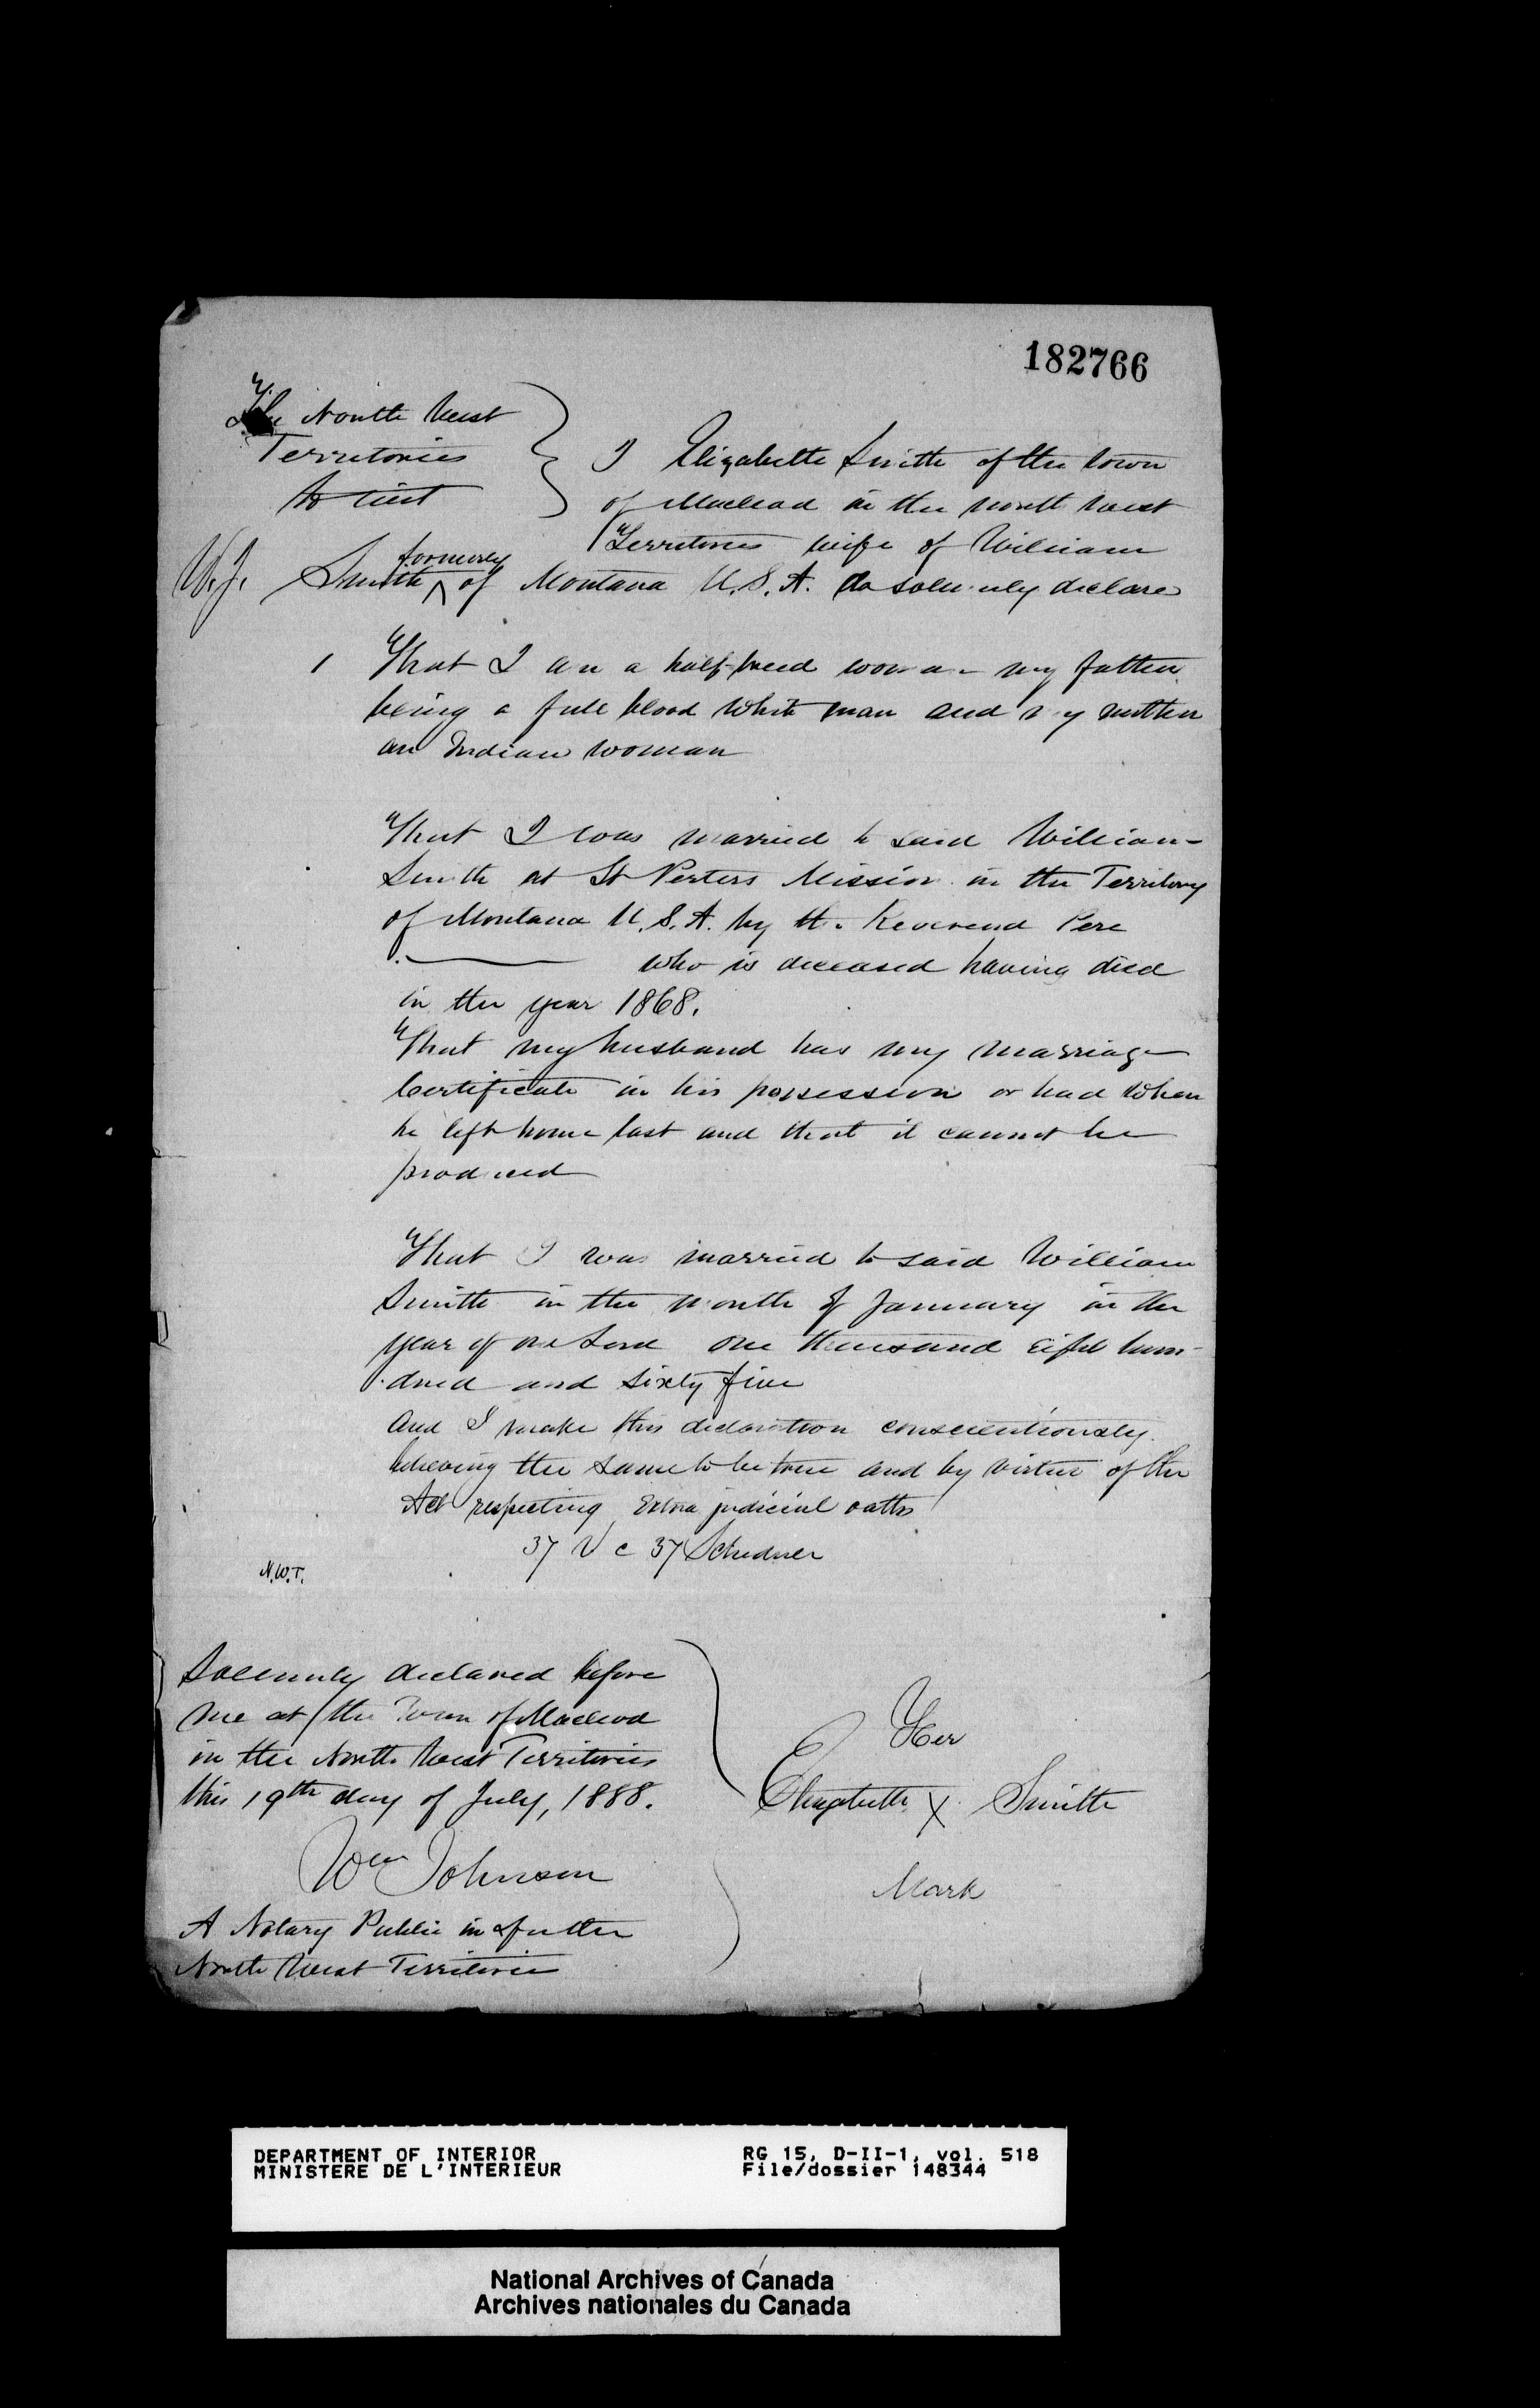 182766
The North West
Territories
To Wit
I Elizabeth Smith of the town
of Macleod in the North West
Territories wife of William
W.J. Smith formerly of Montana U.S.A. do solemnly declare
1 That I am a half-breed woman my father
being a full blood white man and my mother
an Indian woman
That I was married to said William
Smith at St Peters Mission in the Territory
of Montana U.S.A. by the Reverend Pere
who is deceased having died
in the year 1868.
That my husband has my marriage
Certificate in his possession or had when
he left home last and that it cannot be
produced
That I was married to said William
Smith in the month of January in the
year of our Lord one thousand eight hun-
dred and sixty five
And I make this declaration conscientiously
believing the same to be true and by virtue of the
Act respecting Extra judicial oaths
37 V c 37 Schedule
N.W.T.
Solemnly declared before
me at the Town of Macleod
in the North West Territories
this 19th day of July, 1888.
Wm Johnson
A Notary Public in & for the
North West Territories
Her
Elizabeth X Smith
Mark
DEPARTMENT OF INTERIOR
MINISTERE DE L'INTERIEUR
RG 15, D-II-1, vol. 518
File/dossier 148344
National Archives of Canada
Archives nationales du Canada